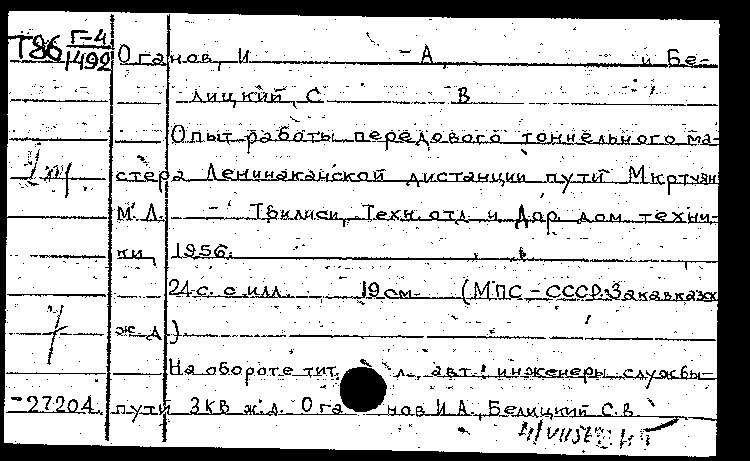 Т86 Г-4/1492 Оганов, И - А, и Бе-
лицкий, С В
Опыт работы передового тоннельного ма-
стера Ленинаканской дистанции пути Мкртчян
М.Л. - Тбилиси, Техн. отд. и Дор. дом техни-
ки, 1956.
24 с. с илл. 19 см (МПС-СССР. Закавказск
ж.д.)
На обороте тит. л. авт.: инженеры службы
-27204. пути ЗКВ ж.д. Оганов И.А., Белицкий С.В.